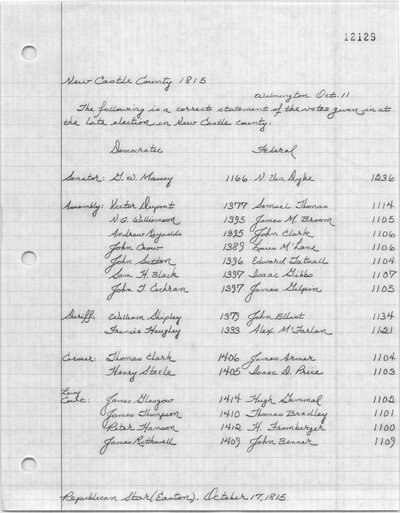 12129
New Castle County 1815
Wilmington Oct. 11
The following is a correct statement of the votes given in at
the late election in New Castle county.
Democratic Federal
Senator: G. W. Massey 1166 N. Van Dyke 1236
Assembly: Victor Dupont 1377 Samuel Thomas 1114
N. G. Williamson 1395 James M. Broom 1105
Andrew Reynolds 1395 John Clark 1106
John Crow 1389 Louis M'Lane 1106
John Sutton 1396 Edward Tatnall 1104
Sam. H. Black 1397 Isaac Gibbs 1107
John T. Cochran 1397 James Galpin 1105
Sheriff: William Shipley 1379 John Elliot 1134
Francis Haughey 1333 Alex M'Farlan 1121
Coroner: Thomas Clark 1406 James Armer 1104
Henry Steele 1405 Isaac D. Price 1103
Levy
Court: James Glasgow 1414 Hugh Gemmal 1102
James Thompson 1410 Thomas Bradley 1101
Peter Hanson 1412 H. Fromberger 1100
James Rothwell 1409 John Benner 1109
Republican Star (Easton). October 17, 1815